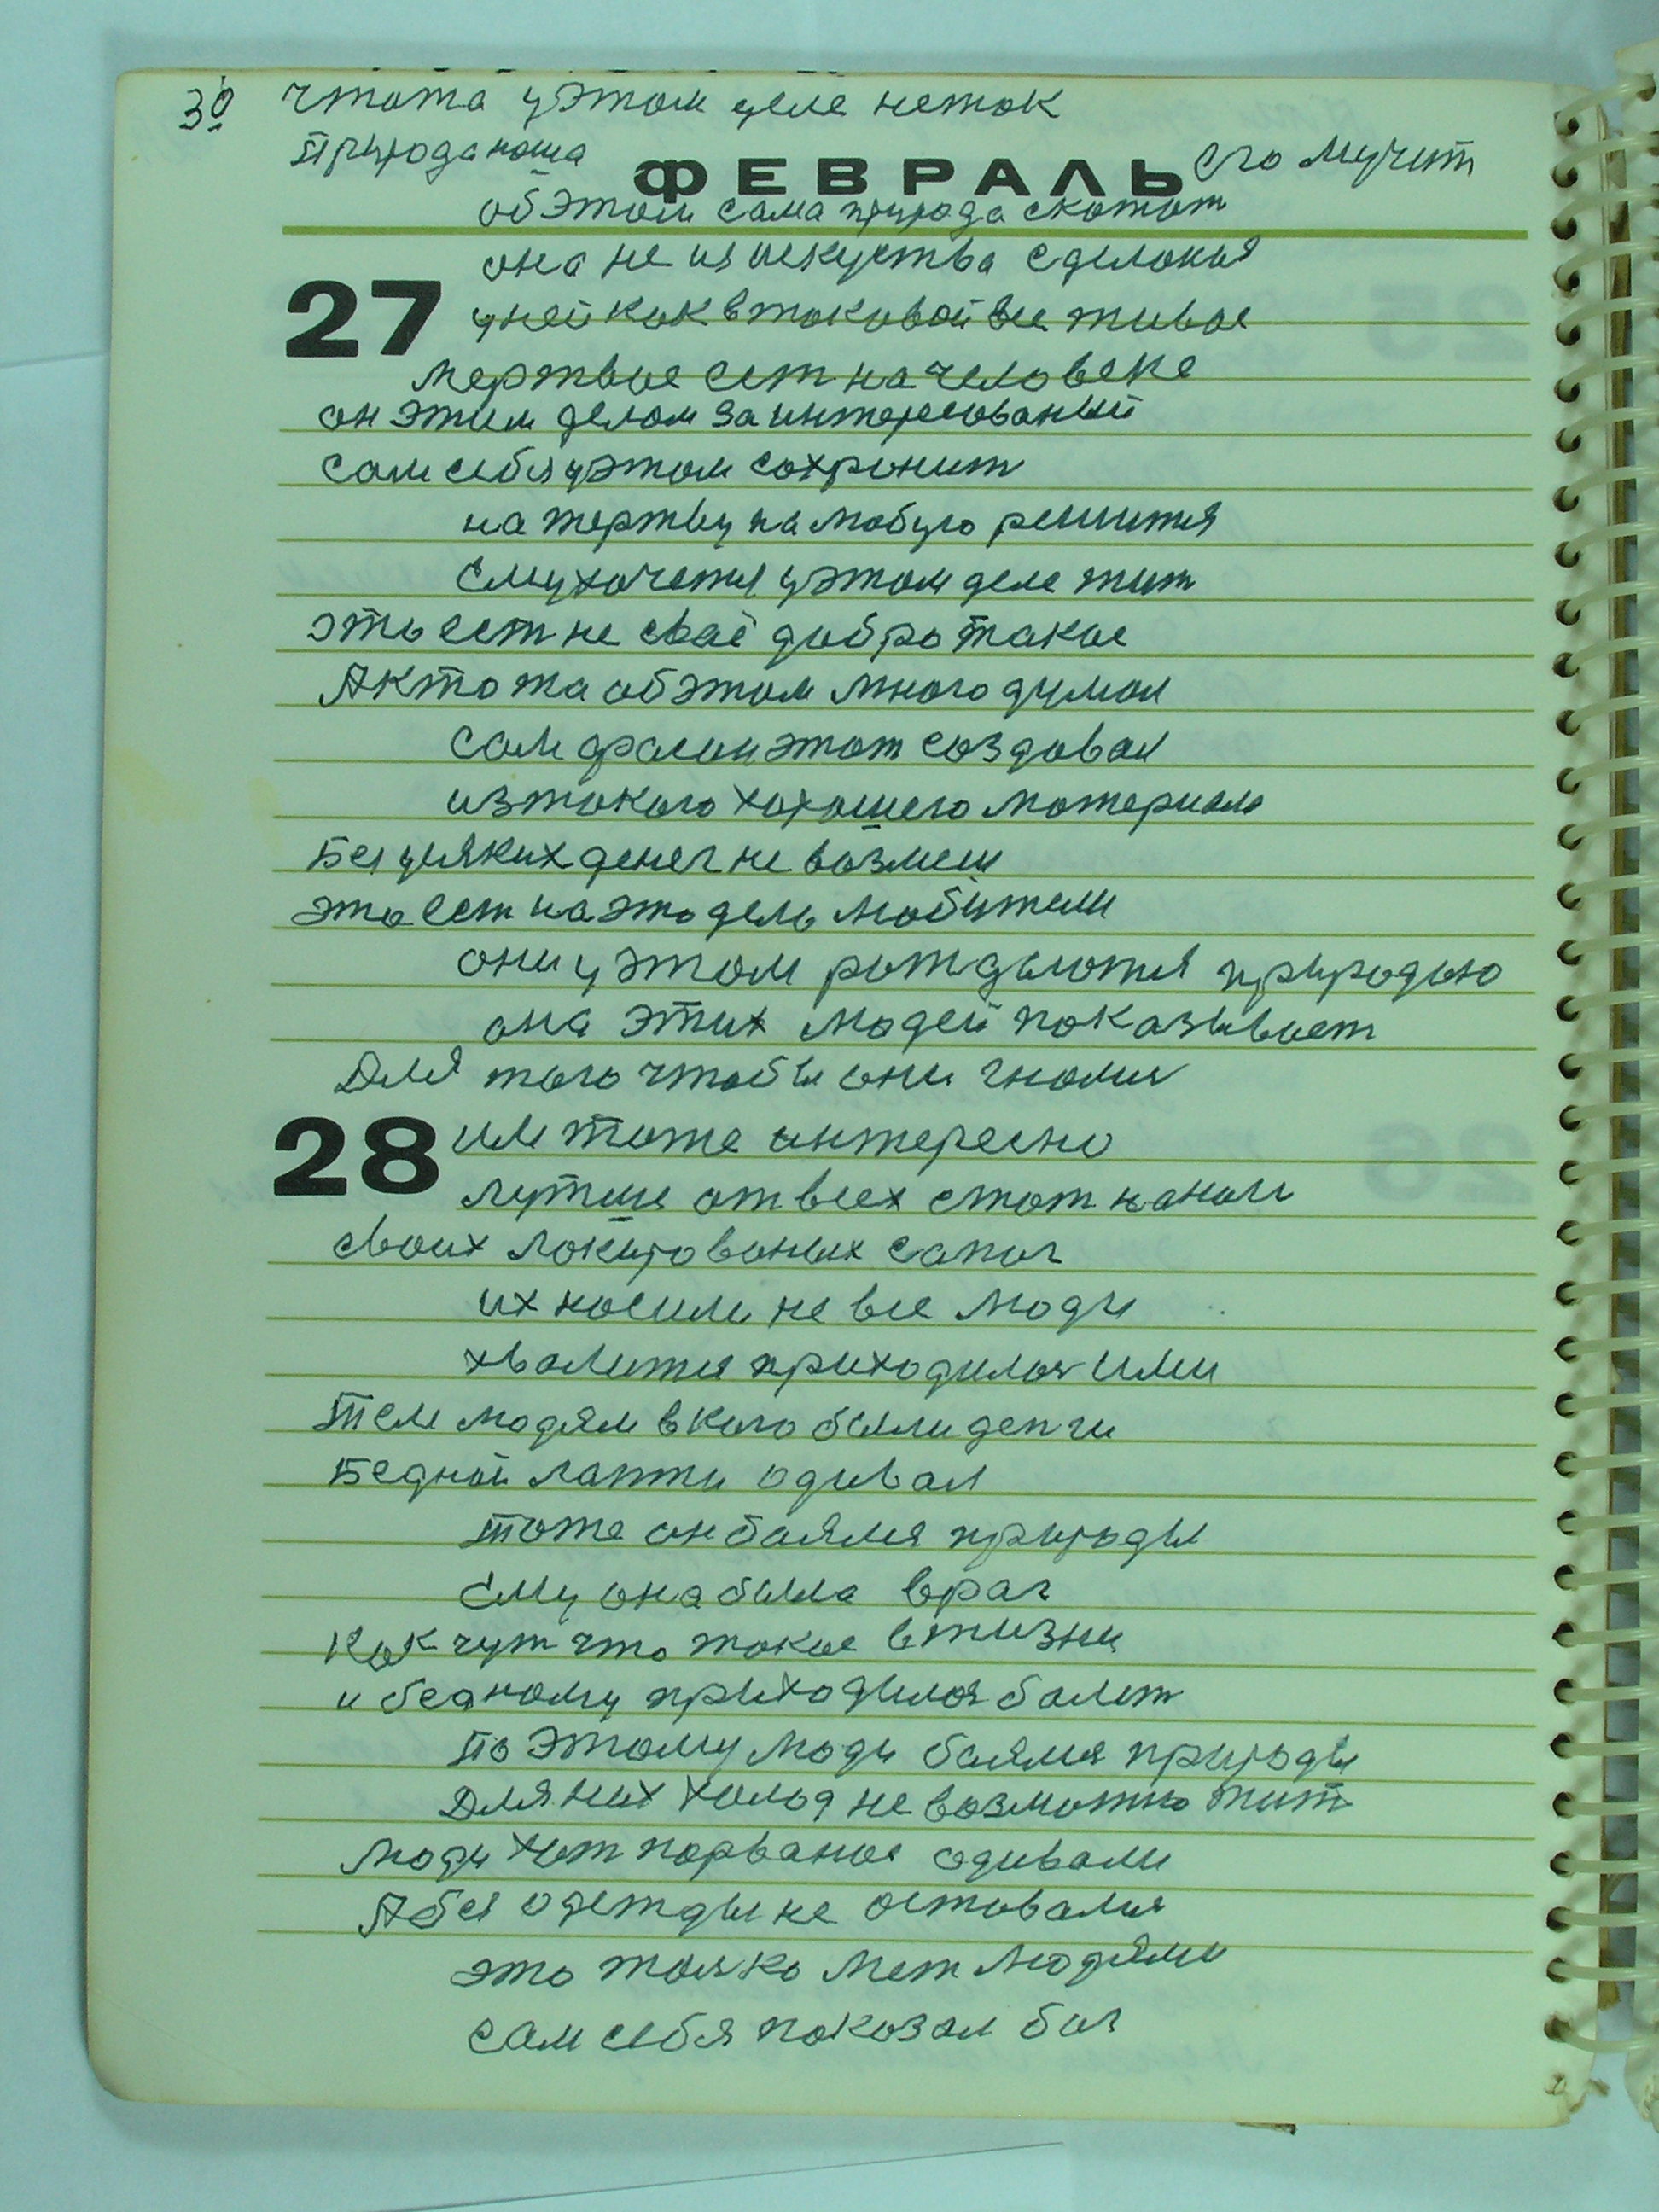 30 чтота уэтом деле неток
Природа наша его мучит
ФЕВРАЛЬ
об этом сама природа скажот
она не из искуства сделоная
27 уней как в таковой все живое
мертвое ест на человеке
он этим делом за интересованый
сам себя уэтом сохронит
на жертву на любую решится
Ему хочется уэтом деле жит
это ест не своё добро такое
А кто жа об этом много думал
сам фасон этот создовал
из токого хорошего материала
Без усяких денег не возмеш
это ест на это дело любители
они у этом рождаются природою
она этих людей показывает
Для того чтобы они знали
28 им тоже интересно
лутше от всех стот на ноги
своих локированых сапог
их носили не все люди
хвалится приходилоя ими
тем людям в кого были денги
Бедной лапти одивал
тоже он боялся природы
Ему она была враг
Как чут что такое в жизни
и бедному приходилоя болет
по этому люди боялся природы
Для них холод не возможно жит
люди хот порваное одивали
А без одежды не оставался
это толко меж людями
сам себя показал бог